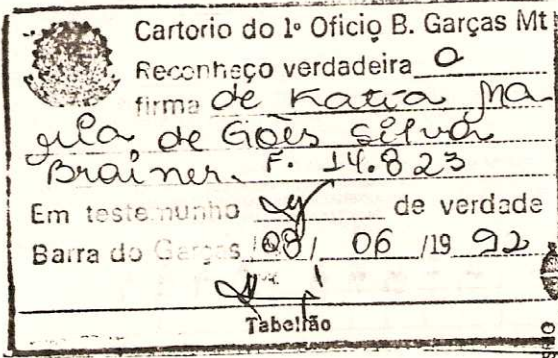 Cartorio do 1º Oficio B. Garças Mt
Reconheço verdadeira a
firma de Katia Ma
ria de Góes Silva
Brainer. F. 14.823
Em testemunho de verdade
Barra do Garças 08/ 06 /19 92
Tabelião